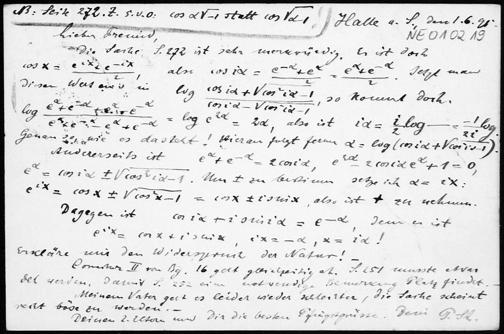 NB: Seite 272. Z. 5. v. o. cos α√-1 statt cos √α-1
Halle a. S., den 1.6.95.
NE 01 02 19
Lieber Freund,
Die Sache S. 272 ist sehr merkwürdig. Es ist doch
cos x = (e^{ix}+e^{-ix})/2, also cos iα = (e^{-α}+e^{α})/2 = (e^{α}+e^{-α})/2. Setzt man
diesen Wert ein in log (cos iα + √(cos² iα - 1))/(cos iα - √(cos² iα - 1)), so kommt doch
log = log e^{2α} = 2α, also ist iα = i/2 log = -1/2i log.
Genau so wie es dasteht! Hieraus folgt ferner α = log (cos iα + √(cos² iα - 1)).
Anderseits ist e^{α} + e^{-α} = 2 cos iα, e^{2α} - 2 cos iα e^{α} + 1 = 0,
e^{α} = cos iα ± √(cos² iα - 1). Um ± zu bestimmen setze ich α = ix:
e^{ix} = cos x ± √(cos² x - 1) = cos x ± i sin x, also ist + zu nehmen.
Dagegen ist cos iα + i sin iα = e^{-α}, denn es ist
e^{ix} = cos x + i sin x, ix = -α, x = iα!
Erkläre mir den Widerspruch der Natur! –
Correctur II von Bg. 16 geht gleichzeitig ab. S. 251 musste etwas
werden, damit S. 252 eine notwendige Bemerkung Platz findet. –
Meinem Vater geht es leider wieder schlechter, die Sache scheint
recht böse zu werden. –
Deinen l. Eltern und Dir die besten Pfingstgrüsse. Dein P. St.